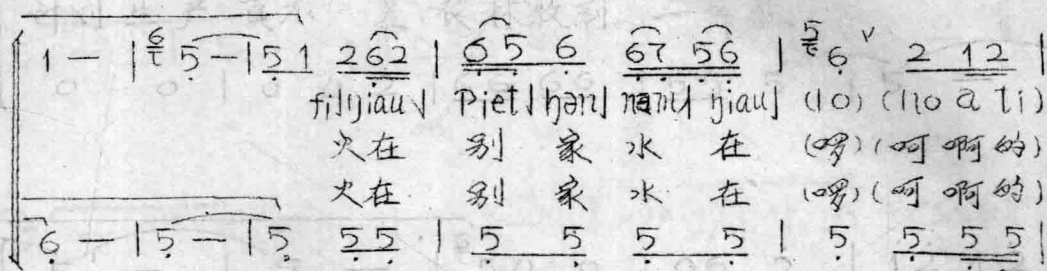 1 — | 6 5 — | 5 1 2 6 2 | 6 5 6 6 7 5 6 | 5 6 ∨ 2 1 2 |
fi˩ ŋiau˩ Piet˩ ɧən˩ nəm˩ ŋiau˩ (lo) (ho a ti)
火在 别 家 水 在 (啰) (呵 啊 的)
火在 别 家 水 在 (啰) (呵 啊 的)
6 — | 5 — | 5 5 5 | 5 5 5 5 | 5 5 5 5 |